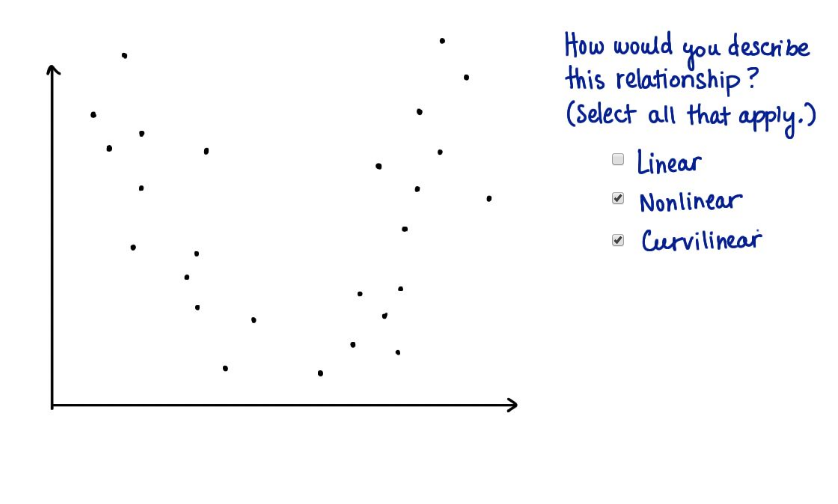 How would you describe
this relationship?
(Select all that apply.)
Linear
Nonlinear
Curvilinear